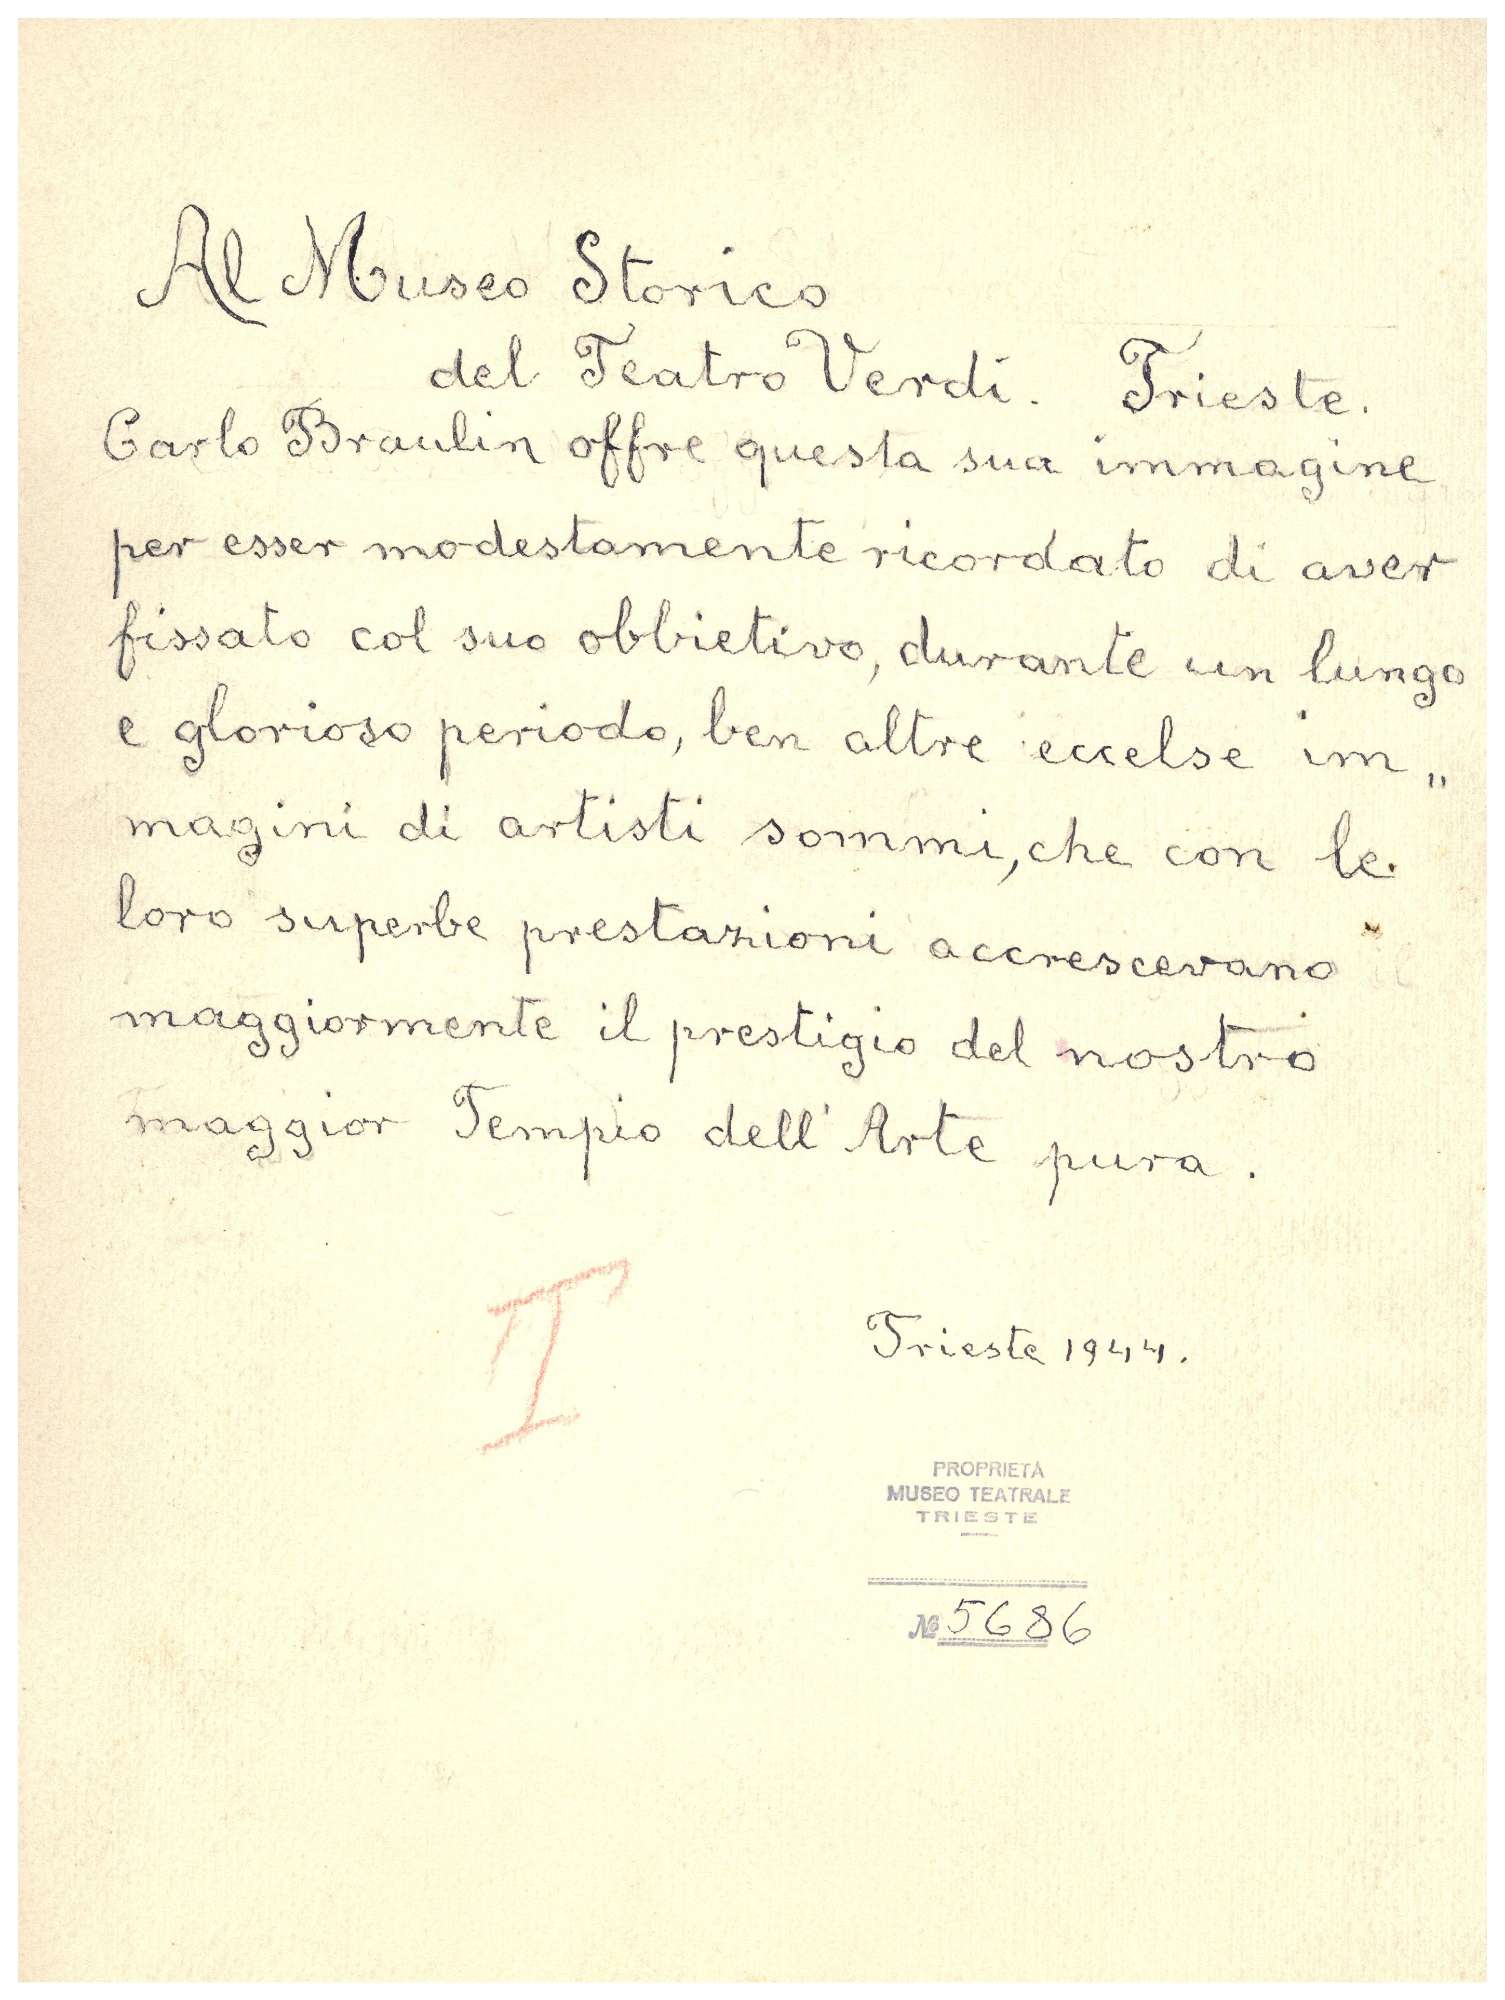 Al Museo Storico
del Teatro Verdi. Trieste.
Carlo Braulin offre questa sua immagine
per esser modestamente ricordato di aver
fissato col suo obbietivo, durante un lungo
e glorioso periodo, ben altre eccelse im„
magini di artisti sommi, che con le
loro superbe prestazioni accrescevano
maggiormente il prestigio del nostro
maggior Tempio dell'Arte pura.
I
Trieste 1944.
PROPRIETÀ
MUSEO TEATRALE
TRIESTE
№ 5686